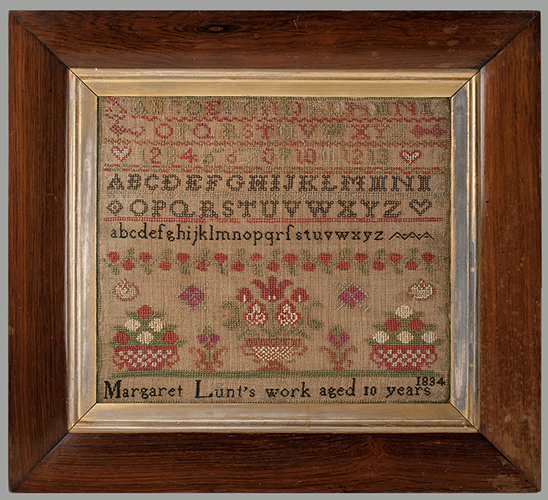 OPQRSTUVWXY
ABCDEFGHIJKLMN
OPQRSTUVWXYZ
abcdefghijklmnopqrſstuvwxyz
Margaret Lunt's work aged 10 years 1834